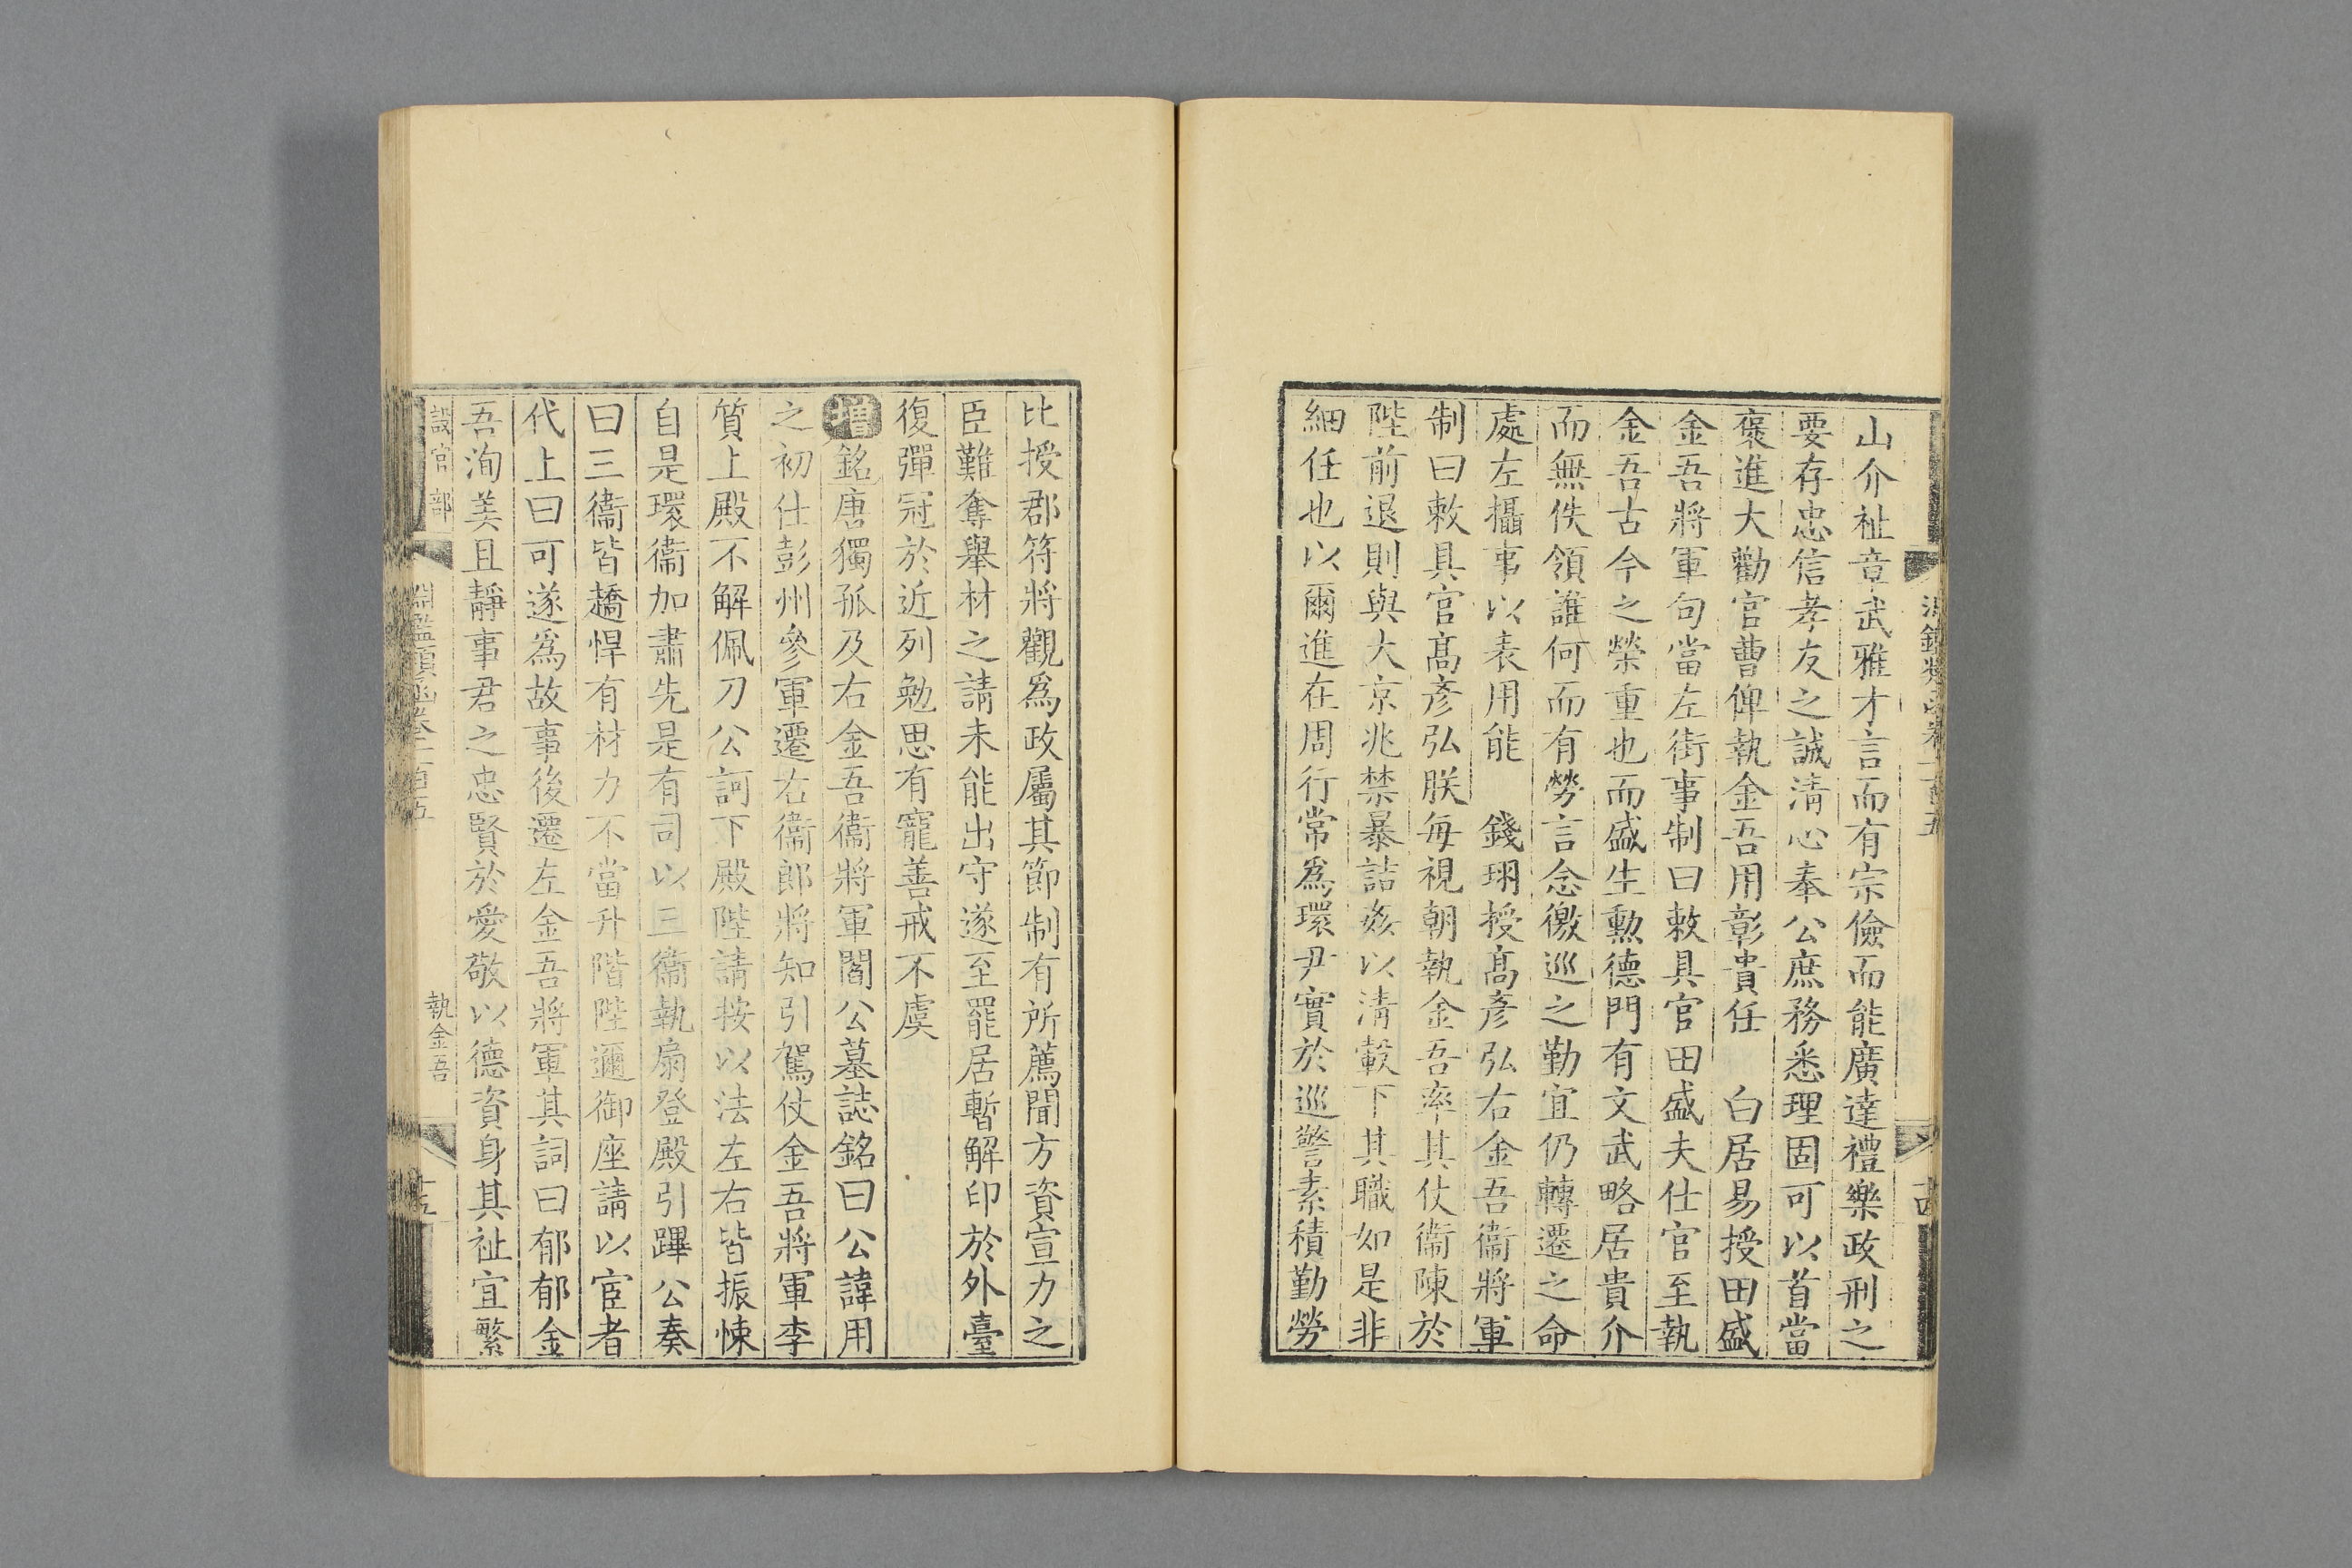 山介祉章武雅才言而有宗儉而能廣達禮樂政刑之
要存忠信孝友之誠清心奉公庶務悉理固可以首當
襃進大勸官曹俾執金吾用彰貴任 白居易授田盛
金吾將軍句當左街事制曰敕具官田盛夫仕官至執
金吾古今之榮重也而盛生勲德門有文武略居貴介
而無佚領誰何而有勞言念徼巡之勤宜仍轉遷之命
處左攝事以表用能 錢珝授髙彥弘右金吾衞將軍
制曰敕具官髙彥弘朕每視朝執金吾率其仗衞陳於
陛前退則與大京兆禁暴詰姦以清轂下其職如是非
細任也以爾進在周行常爲環尹實於巡警素積勤勞
比授郡符將觀爲政屬其節制有所薦聞方資宣力之
臣難奪舉材之請未能出守遂至罷居暫解印於外臺
復彈冠於近列勉思有寵善戒不虞
增銘唐獨孤及右金吾衞將軍閻公墓誌銘曰公諱用
之初仕彭州參軍遷右衞郎將知引駕仗金吾將軍李
質上殿不解佩刀公訶下殿陛請按以法左右皆振悚
自是環衞加肅先是有司以三衞執扇登殿引蹕公奏
曰三衞皆趫悍有材力不當升階陛邇御座請以宦者
代上曰可遂爲故事後遷左金吾將軍其詞曰郁郁金
吾洵美且靜事君之忠賢於愛敬以德資身其祉宜繁
設官部 淵鑑類函卷一百五 執金吾 十五